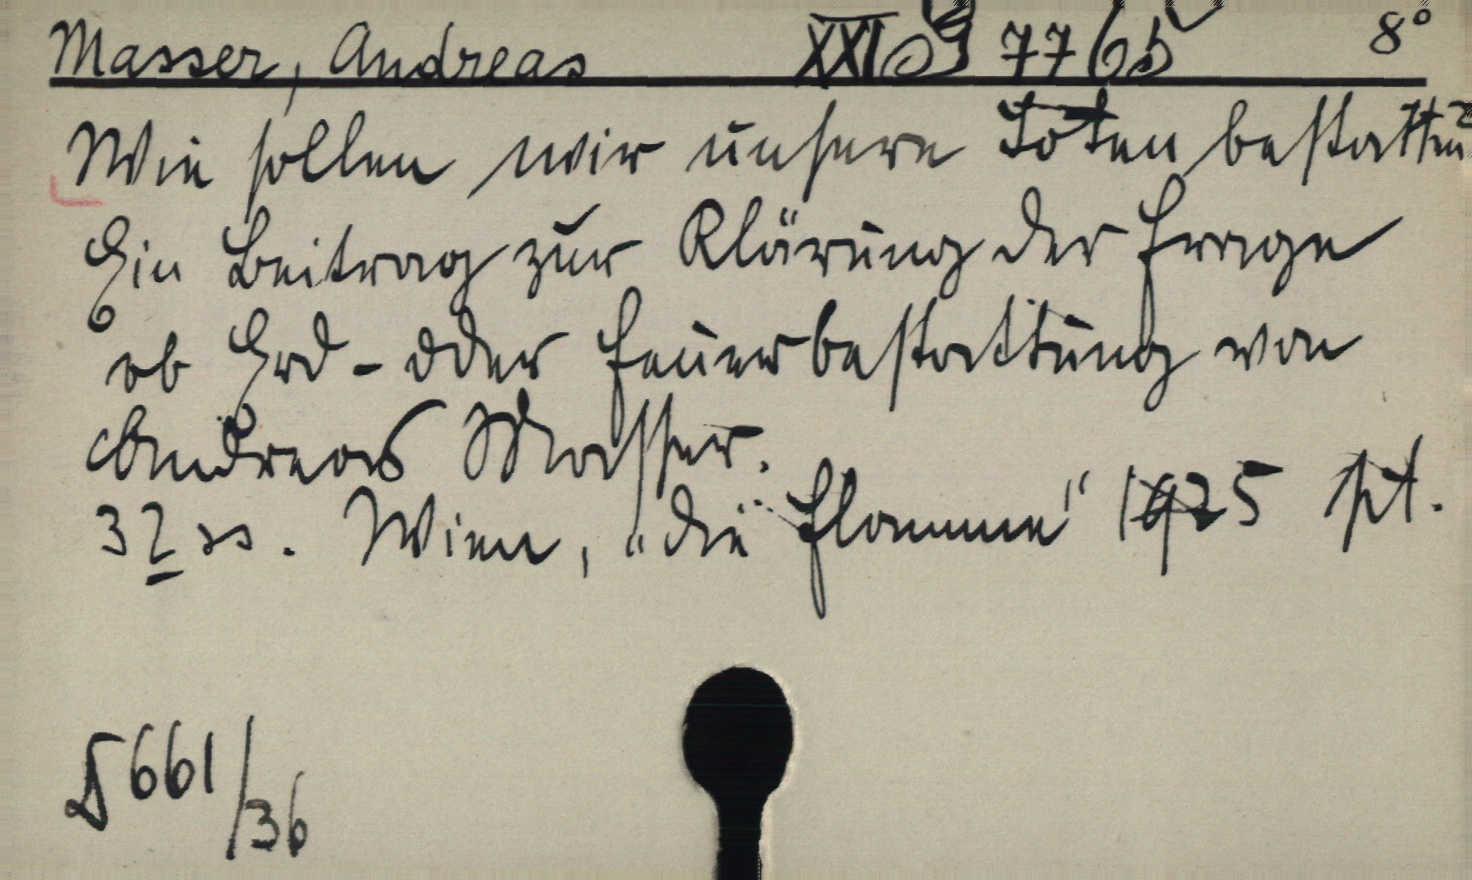 Masser, Andreas 7765 8°
Wie sollen wir unsere Toten bestatten?
Ein Beitrag zur Klärung der Frage
ob Erd- oder Feuerbestattung von
Andreas Masser.
32 ss. Wien, "die Flamme" 1925
D 661/36